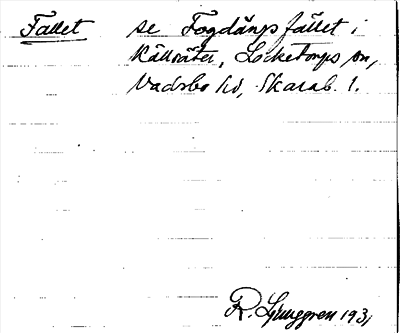 Fallet se Fogdängsfället i
Källsäter, Locketorps sn,
Vadsbo hd, Skarab. l.
R. Ljunggren 193